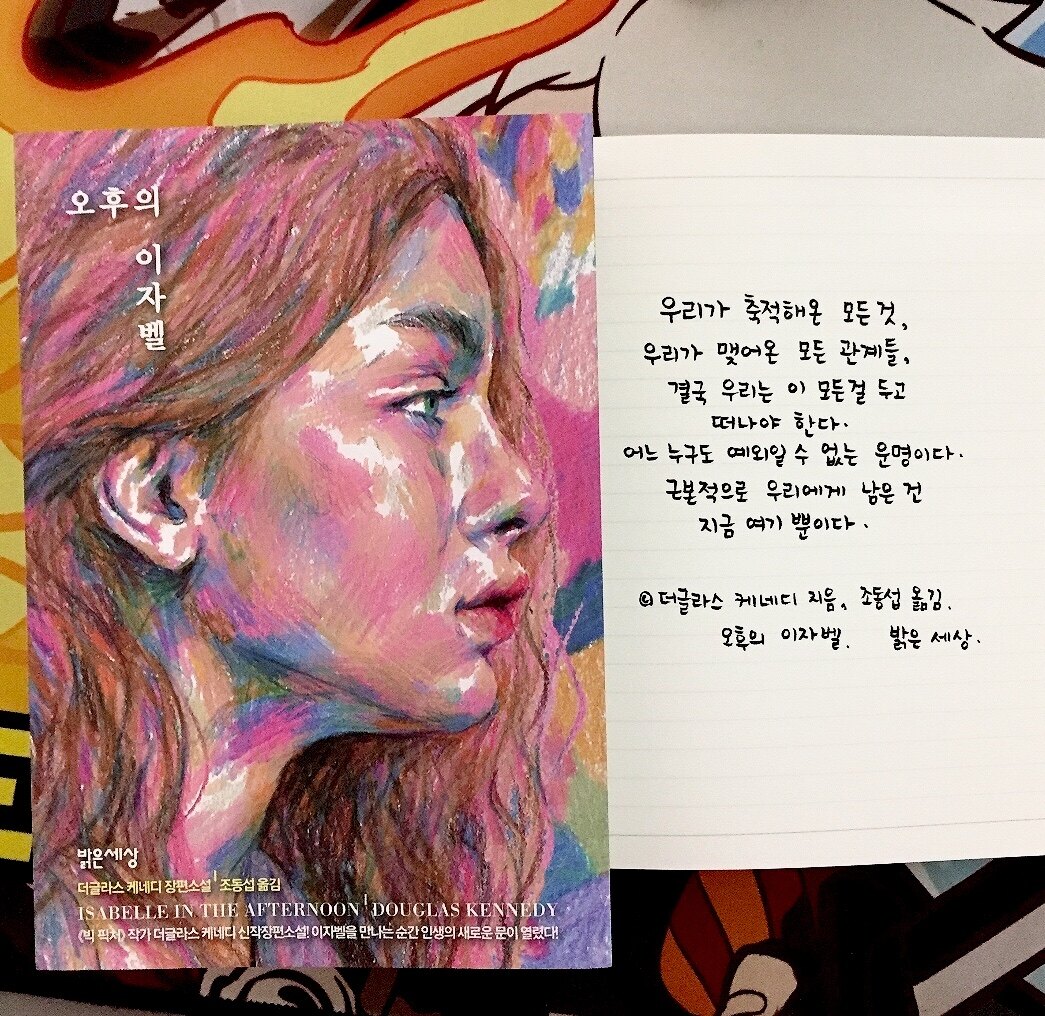 오후의
이자벨
밝은세상
더글라스 케네디 장편소설 | 조동섭 옮김
ISABELLE IN THE AFTERNOON | DOUGLAS KENNEDY
《빅 픽처》 작가 더글라스 케네디 신작장편소설! 이자벨을 만나는 순간 인생의 새로운 문이 열렸다!
우리가 축적해온 모든것,
우리가 맺어온 모든 관계들,
결국 우리는 이 모든걸 두고
떠나야 한다.
어느 누구도 예외일 수 없는 운명이다.
근본적으로 우리에게 남은 건
지금 여기 뿐이다.
© 더글라스 케네디 지음, 조동섭 옮김.
오후의 이자벨. 밝은 세상.